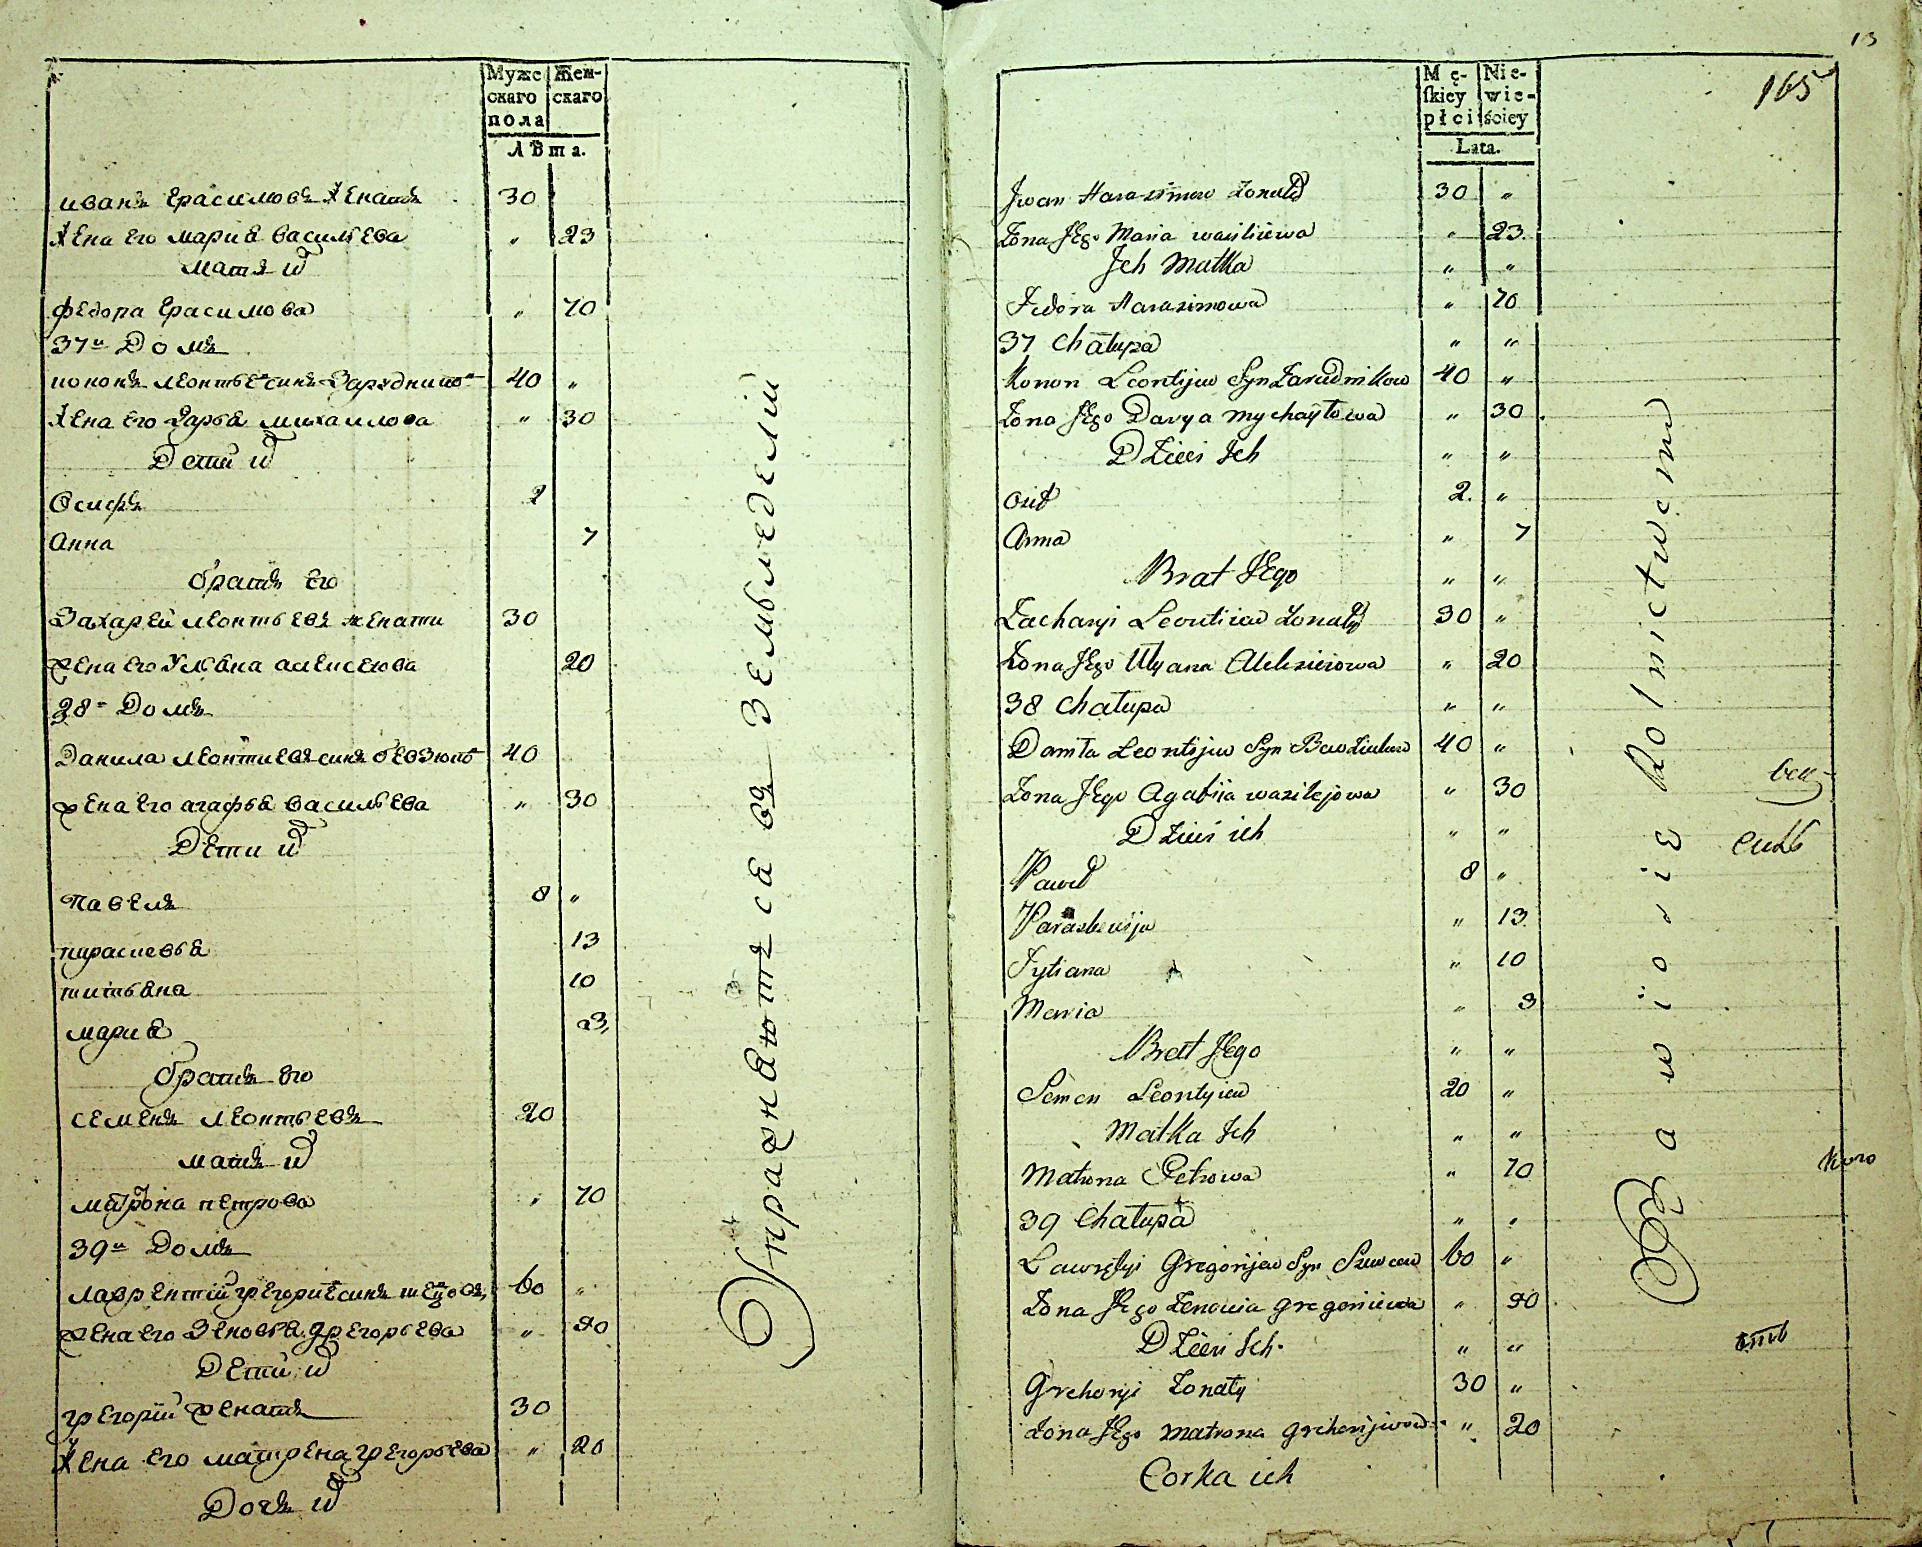 Муже
скаго
пола
Жен-
скаго
Лѣта.
иванъ Ерасимовъ Женатъ 30
Жена Его мария василѣва " 23
мать их
федора Ерасимова " 70
37й Домъ
кононъ леонтьевъ синъ Зарудниковъ 40 "
Жена Его Даря михаилова " 30
Дети их
Осифъ 2
Анна 7
братъ Его
Захарей леонтьевъ женати 30
жена Его Уляна алексеюва 20
38й Домъ
Данила леонтиевъ синъ 40
жена Его агафья василѣва " 30
Дети их
павелъ 8 "
параскевья 13
титьяна 10
мария 3
братъ Его
семенъ леонтьевъ 20
мать их
матрона петрова " 70
39й Домъ
лаврентий грегориевъ синъ шевцовъ 60 "
жена Его Зеновья грегорьева "
Дети их
грегорий женатъ 30
Жена Его матрена грегорьева " 20
Дочь их
Упражняются въ Земледелии
13
165
Mę-
ſkiey
płci
Nie-
wie-
ściey
Lata.
Jwan Harasimow Zonaty 30 "
Zona JEgo Maria wasiliewa " 23
Jch Matka " "
Fedora Harasimowa " 70
37 Chałupa " "
Konon Leontijew Syn Zarudnikow 40 "
Zona JEgo Darya mychayłowa " 30
DZieci Jch " "
Osif 2 "
Anna " 7
Brat JEgo " "
Zacharyi Leontiiew Zonaty 30 "
Zona JEgo Ulyana Alexieiowa " 20
38 Chałupa " "
Daniła Leontijew Syn 40 "
Zona JEgo Agafija wasilejowa " 30
DZieci ich " "
Paweł 8 "
Paraskewija " 13
Tytiana " 10
Maria " 3
Brat JEgo " "
Semen Leontyiew 20 "
Matka Jch " "
Matrona Petrowa " 70
39 Chałupa " "
Lawrętyi Gregorijew Syn Szewcow 60 "
Zona JEgo Zenowia gregoriewa "
DZieci Jch " "
Grehoryi Zonaty 30 "
Zona JEgo Matrona grehorijewa " 20
Corka ich
Bawią się Rolnictwem